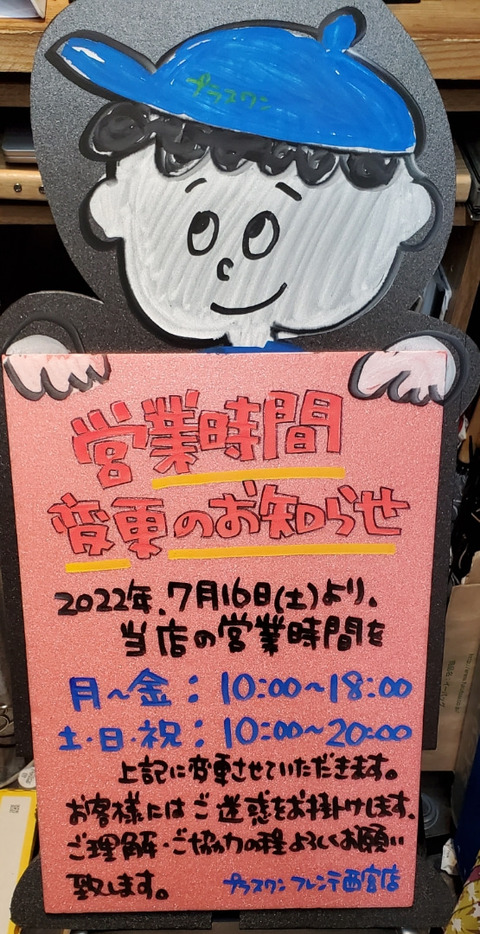 プラスワン
営業時間
変更のお知らせ
2022年.7月16日(土)より、
当店の営業時間を
月~金:10:00~18:00
土・日・祝:10:00~20:00
上記に変更させていただきます。
お客様にはご迷惑をお掛けします。
ご理解・ご協力の程よろしくお願い
致します。
プラスワン フレンテ西宮店